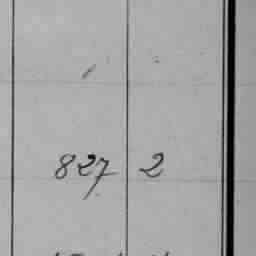 827 2